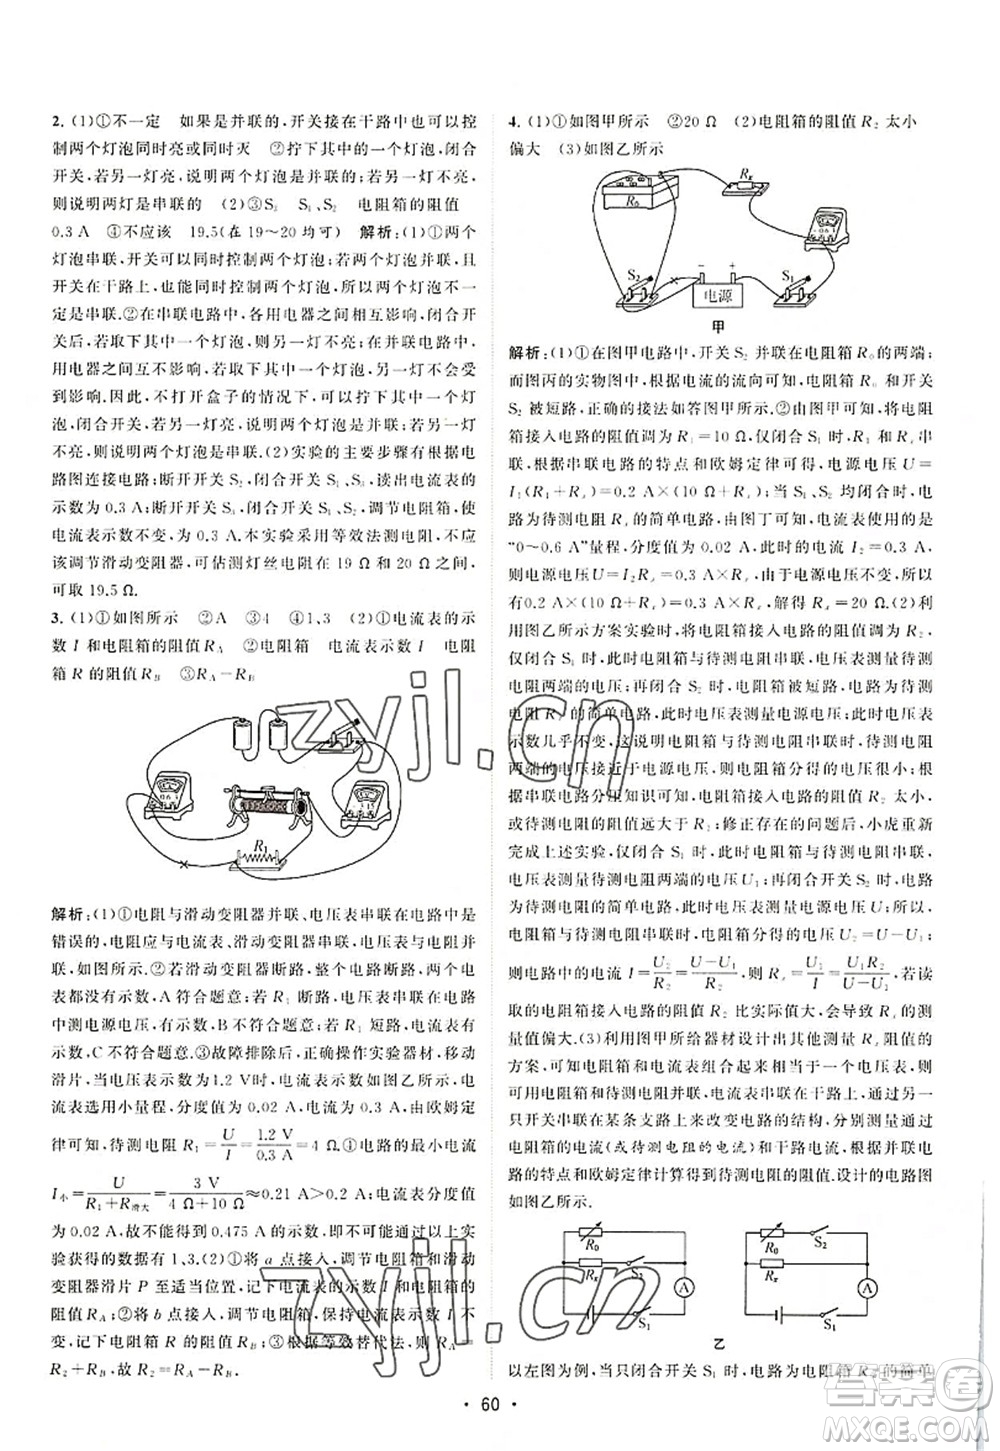 2. (1)①不一定　如果是并联的,开关接在干路中也可以控
制两个灯泡同时亮或同时灭　②拧下其中一个灯泡,闭合
开关,若另一灯亮,说明两个灯泡是并联的,若另一灯不亮,
则说明两灯是串联的　(2)③S₂　S₁、S₂　电阻箱的阻值
0.3 A　④不应该　19.5(在 19～20 均可)　解析:(1)①两个
灯泡串联,闭合开关可以同时控制两个灯泡;若两个灯泡并
联,开关在干路上,也可以同时控制两个灯泡,所以灯泡不一
定是串联.②在串联电路中,各用电器互相影响,闭合开关
后,若取下其中一个灯泡,另一个不亮;在并联电路中,
用电器之间互不影响,若取下其中一个灯泡,另一个仍然
亮.因此,在不打开盒子的情况下,可以取下其中一个灯泡,
闭合开关,若另外一个灯泡亮,说明两个灯泡是并联;若不
亮,说明两个灯泡是串联.(2)实验的主要步骤有根据电
路图连接电路;断开开关 S₂,闭合开关 S₁,读出电流表的
示数 0.3 A;断开开关 S₁,闭合开关 S₂,调节电阻箱,使
电流表示数不变,为 0.3 A.本实验采用等效法测电阻,不应
该调节滑动变阻器,可估测灯丝电阻在 19 Ω 和 20 Ω 之间,
可取 19.5 Ω.
3. (1)①如图所示　②A　③4　④1、3　(2)①电流表的示
数 I 和电阻箱的阻值 R_A　②电阻箱　电流表示数 I　电阻
箱 R 的阻值 R_B　③R_A－R_B
R₁
解析:(1)①电阻与滑动变阻器并联、电压表串联在电路中是
错误的,电阻应与电流表、滑动变阻器串联,电压表与电阻并
联.如图所示.②若滑动变阻器断路,整个电路断路,两个电
表都没有示数,A 符合题意;若 R₁ 断路,电压表串联在电路
中测电源电压,有示数,B 不符合题意;若 R₁ 短路,电流表有
示数,C 不符合题意;③故障排除后,正确操作实验器材,移动
滑片,当电压表示数为1.2 V时,电流表的示数如图乙所示,电
流表选用小量程,分度值为 0.02 A,电流为 0.3 A,由欧姆定
律可知,待测电阻 R₁＝U/I＝1.2 V/0.3 A＝4 Ω;④电路的最小电流
I小＝U/(R₁＋R滑大)＝3 V/(4 Ω＋10 Ω)≈0.21 A＞0.2 A,电流表分度值
为 0.02 A,故不能得到 0.475 A 的示数,可知通过以上实
验获得的数据有 1、3.(2)①将 a 点接入,调节电阻箱和滑动
变阻器滑片 P 至适当位置,记下电流表示数 I 和电阻箱的
阻值 R_A;②将 b 点接入,调节电阻箱,保持电流表示数不
变,记下电阻箱 R 的阻值 R_B;③根据等效替代法,R_A＝
R₂＋R_B,故 R₂＝R_A－R_B.
4. (1)①如图甲所示　②20 Ω　(2)电阻箱的阻值 R₂ 太小
偏大　(3)如图乙所示
R₀
Rₓ
S₂
电源
S₁
甲
解析:(1)①在图甲电路中,开关 S₂ 并联在电阻箱 R₀的两端;
而图丙的实物图中,根据电流的流向可知,电阻箱 R₀ 和开关
S₂ 被短路,正确的接法如答图甲所示.②由图甲可知,电阻
箱接入电路的阻值调为 R₁＝10 Ω,仅闭合 S₁ 时,Rₓ和R₀串
联,根据串联电路的特点和欧姆定律可得,电源电压 U＝
I₁(R₁＋Rₓ)＝0.2 A×(10 Ω＋Rₓ),S₁、S₂ 均闭合时,电
路为待测电阻 Rₓ 的简单电路,由图丁可知,电流表使用的是
“0～0.6 A”量程,分度值为 0.02 A,此时的电流 I₂＝0.3 A,
则电源电压 U＝I₂Rₓ＝0.3 A×Rₓ,由于电源电压不变,所以
有0.2 A×(10 Ω＋Rₓ)＝0.3 A×Rₓ,解得Rₓ＝20 Ω.(2)利
用图乙所示方案实验时,电阻箱接入电路的阻值调为 R₂,
仅闭合 S₁ 时,电阻箱与待测电阻串联,电压表测量待测
电阻两端的电压;再闭合 S₂ 时,电阻箱被短路,电路为待测
电阻 Rₓ 的简单电路,此时电压表测量电源电压,此时电压表
示数几乎不变,这说明电阻箱与待测电阻串联时,待测电阻
两端的电压接近于电源电压,则电阻箱分得的电压非常小,
根据串联分压知识可知,电阻箱接入电路的阻值 R₂ 太小,
或待测电阻的阻值远大于 R₂;修正存在的问题后,小虎重新
完成上述实验,仅闭合 S₁ 时,电阻箱与待测电阻串联,电压
表测量待测电阻两端的电压 U₁;再闭合开关 S₂ 时,电路
为待测电阻的简单电路,电压表测量电源电压 U;则仅闭合
S₁ 时,电阻箱与待测电阻串联,电阻箱的电压 U₂＝U－U₁,
则电路中的电流 I＝U₂/R₂＝(U－U₁)/R₂,Rₓ＝U₁/I＝U₁R₂/(U－U₁),若读
取的电阻箱接入电路的阻值 R₂ 比实际值大,会导致 Rₓ 的测
量值偏大.(3)利用图甲所给器材设计出其他测量 Rₓ阻值的
方案,可知电阻箱和电流表组合使用,没有电压表,则
可用电阻箱和待测电阻并联,电流表串联在干路上,用另一
只开关串联在某条支路上来改变电路的结构,分别测量通过
电阻箱的电流(或待测电阻的电流)和干路电流,根据并联电
路的特点和欧姆定律计算得到待测电阻的阻值.设计的电路图
如图乙所示.
R₀　S₂　Rₓ　A　S₁
R₀　S₂　Rₓ　A　S₁
乙
以左图为例,当只闭合开关 S₁时,电路为电阻 Rₓ 的简单
· 60 ·
zyjl.cn
zyjl.cn
答案圈
MXQE.COM